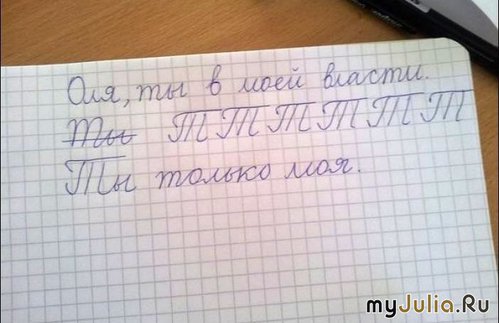 Оля, ты в моей власти.
Ты Т Т Т Т Т Т
Ты только моя.
myJulia.Ru